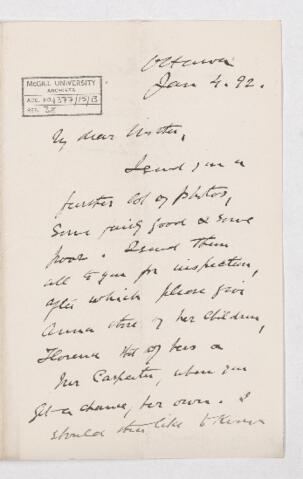 McGILL UNIVERSITY
ARCHIVES
ACC. NO. 1377/15/3
REF. 38
Ottawa
Jan 4. 92.
My dear Mother,
I send you a
further lot of photos,
some fairly good & some
poor. I send them
all to you for inspection,
after which please give
Anna those of her children,
Florence that of hers &
Mrs Carpenter, when you
get a chance, her own. I
should like to know